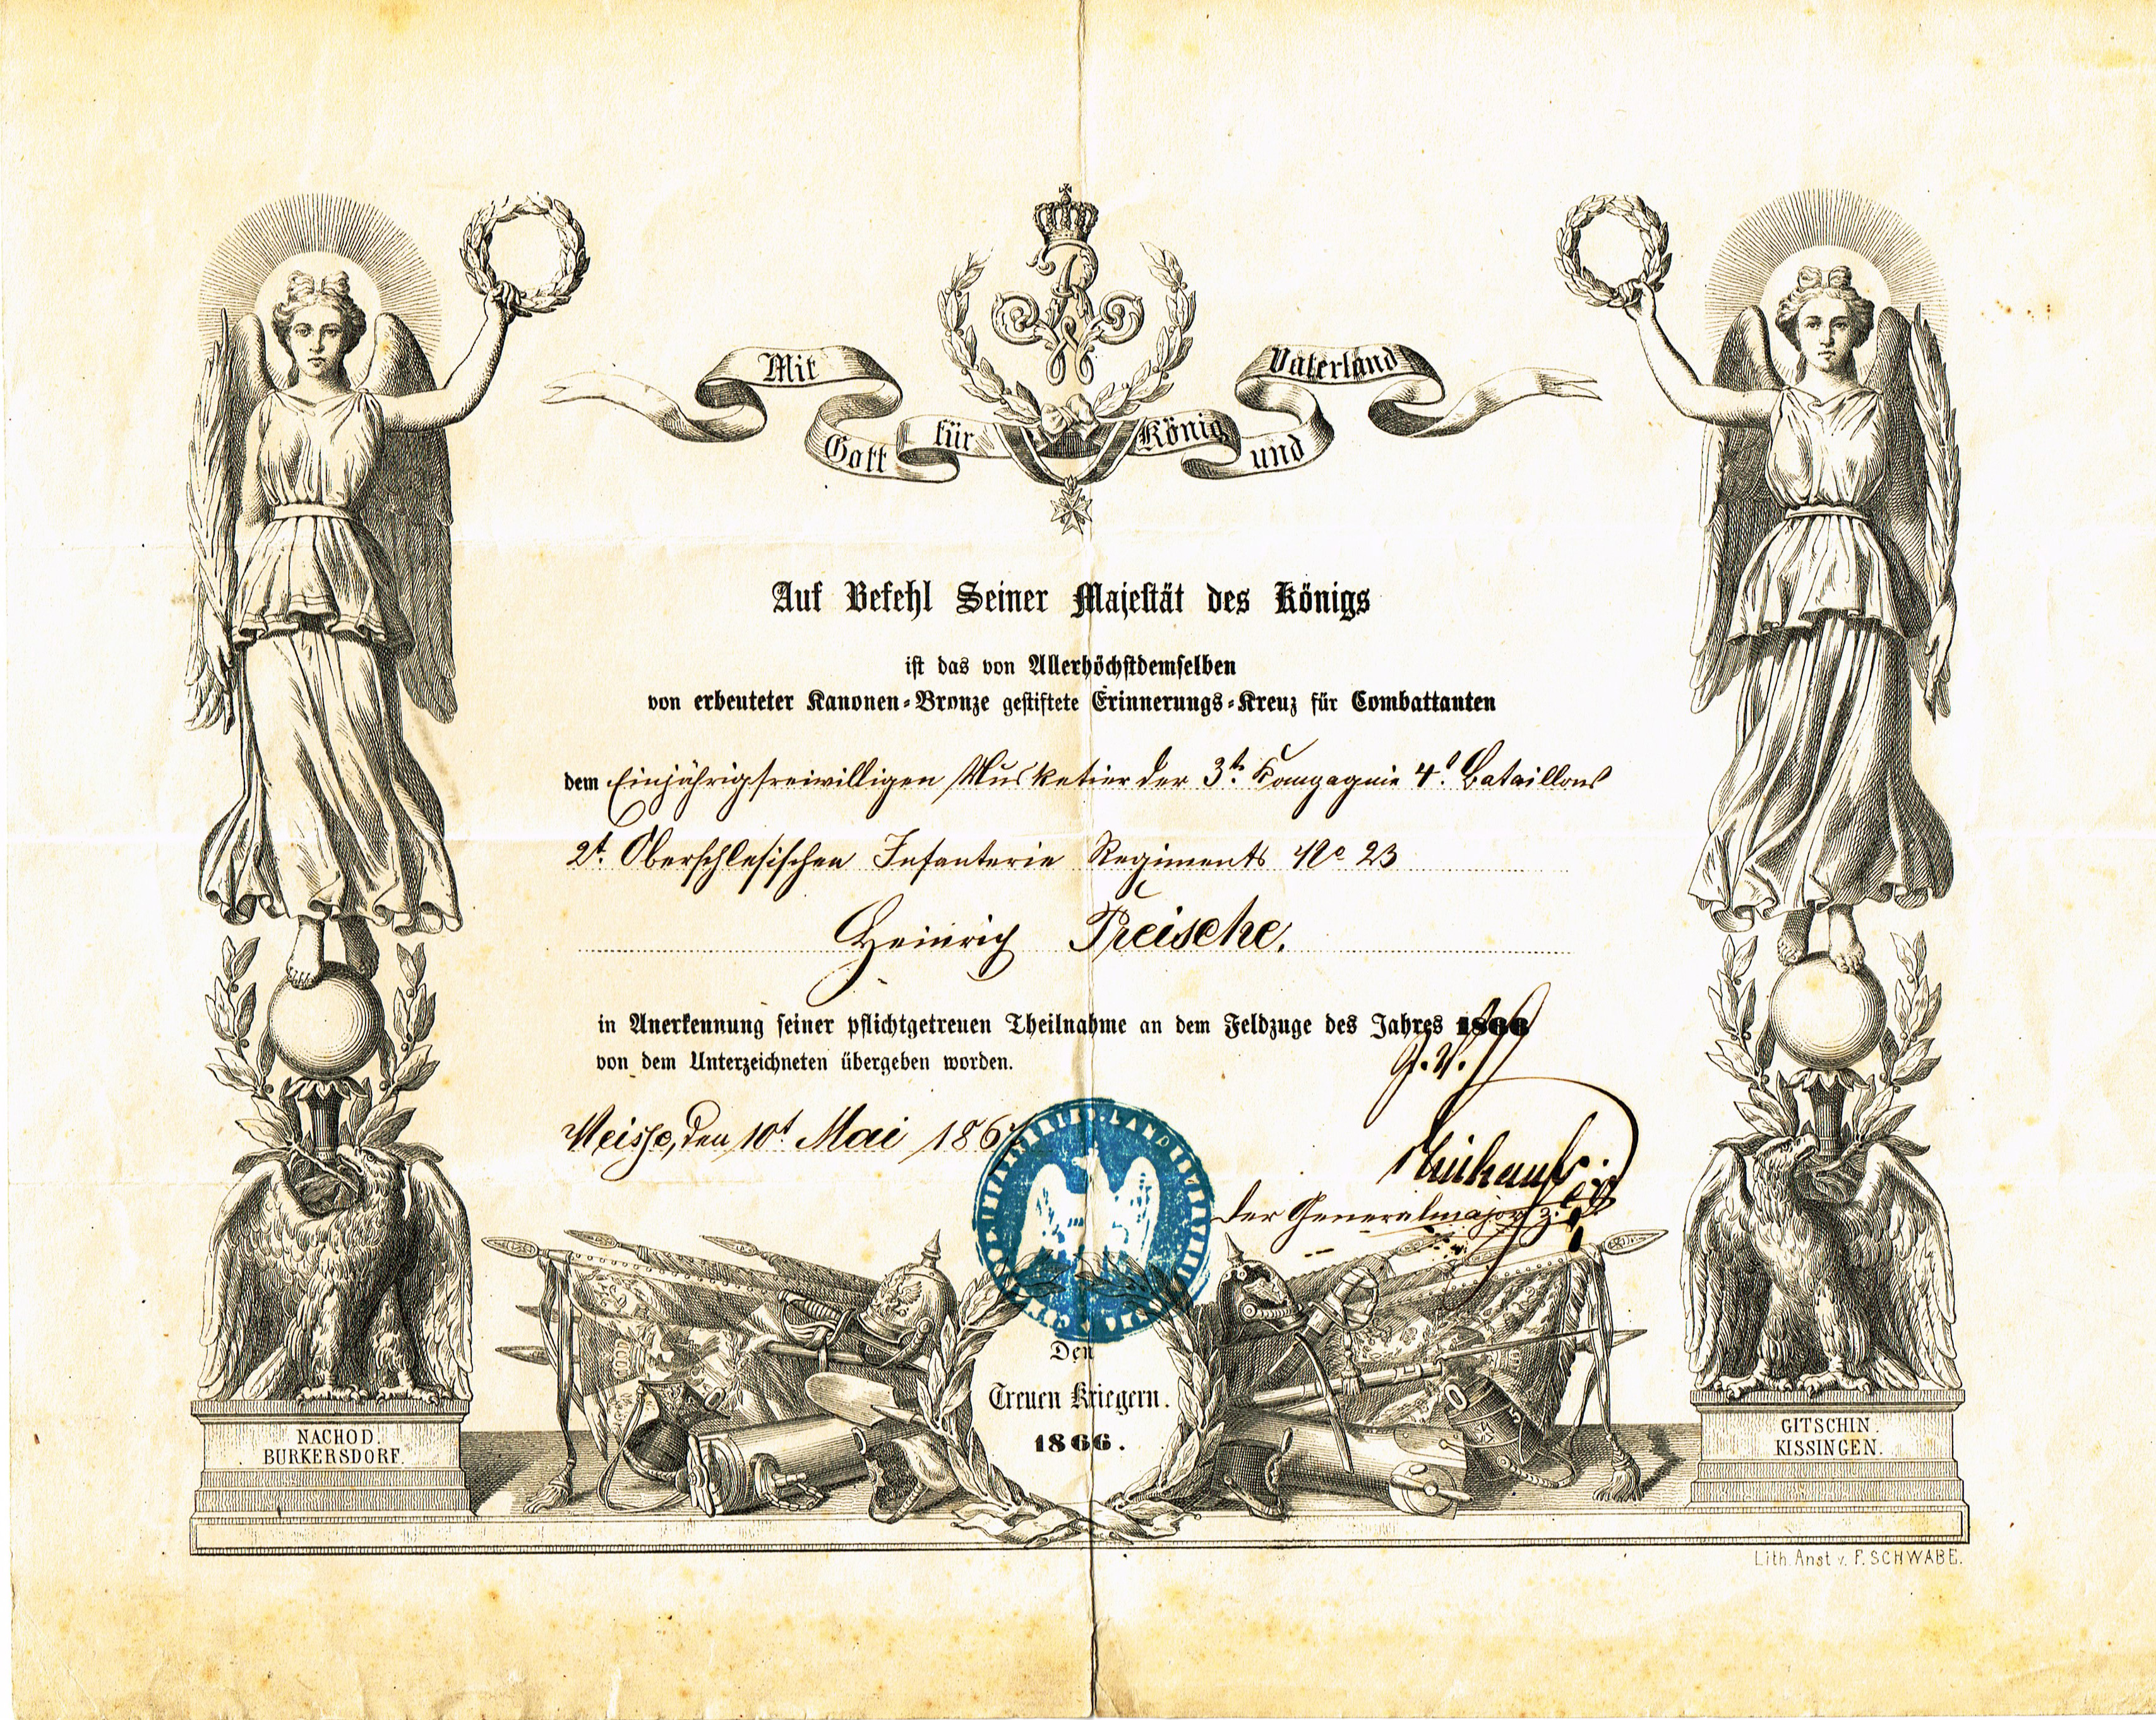 Mit Gott für König und Vaterland
Auf Befehl Seiner Majestät des Königs
ist das von Allerhöchstdemselben
von erbeuteter Kanonen-Bronze gestiftete Erinnerungs-Kreuz für Combattanten
dem Einjährigfreiwilligen Musketier der 3t. Compagnie 4t. Bataillons
2t. Oberschlesischen Infanterie Regiments No 23
Heinrich
in Anerkennung seiner pflichtgetreuen Theilnahme an dem Feldzuge des Jahres 1866
von dem Unterzeichneten übergeben worden.
Neisse, den 10t Mai 1867
der Generalmajor z.
Den
Treuen Kriegern.
1866.
NACHOD.
BURKERSDORF.
GITSCHIN.
KISSINGEN.
Lith. Anst. v. F. SCHWABE.